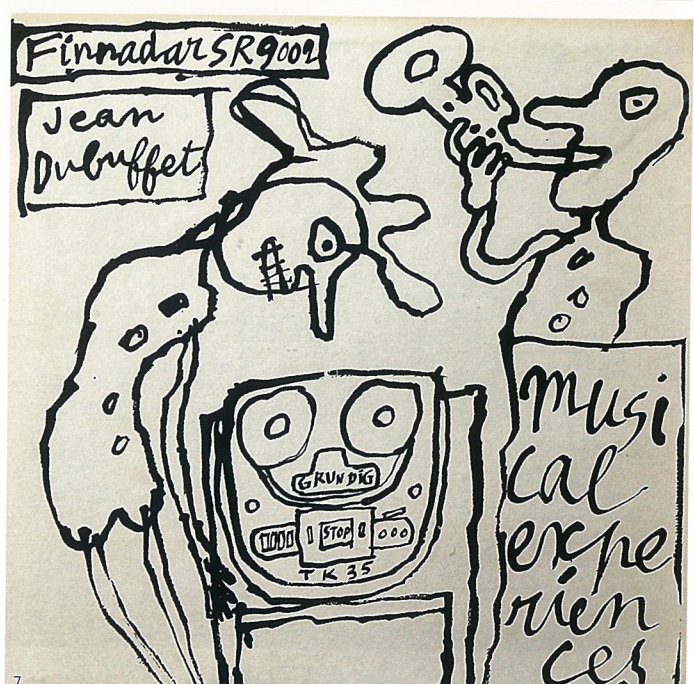 Finnadar SR9002
Jean
Dubuffet
GRUNDIG
STOP
TK 35
musi
cal
expe
rien
ces
7